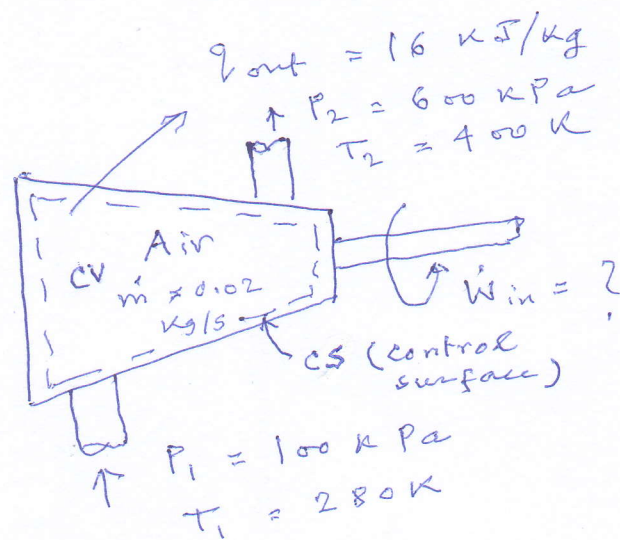 q out = 16 kJ/kg
P2 = 600 kPa
T2 = 400 K
Air
CV
ṁ = 0.02
kg/s
Ẇin = ?
CS (control
surface)
P1 = 100 kPa
T1 = 280K